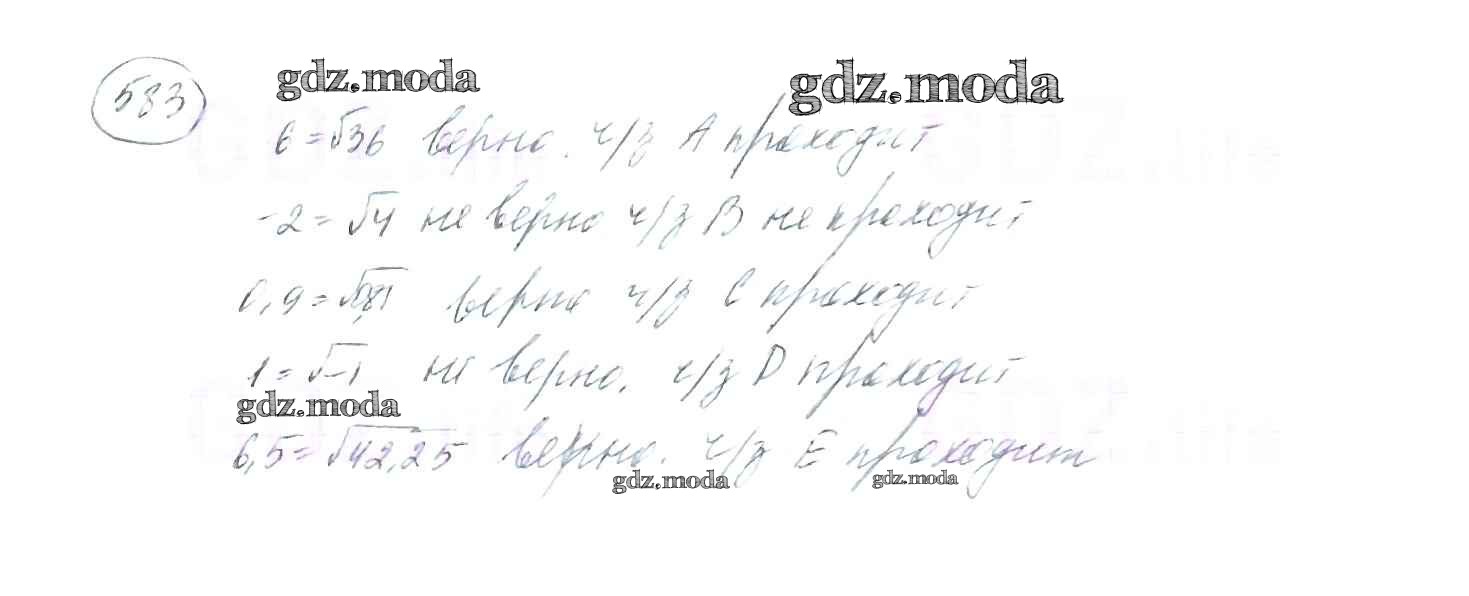 583
gdz.moda gdz.moda
6=√36 верно. ч/з А проходит
-2=√4 не верно ч/з В не проходит
0,9=√0,81 верно ч/з С проходит
1=√-1 не верно. ч/з D проходит
gdz.moda
6,5=√42,25 верно. ч/з Е проходит
gdz.moda gdz.moda